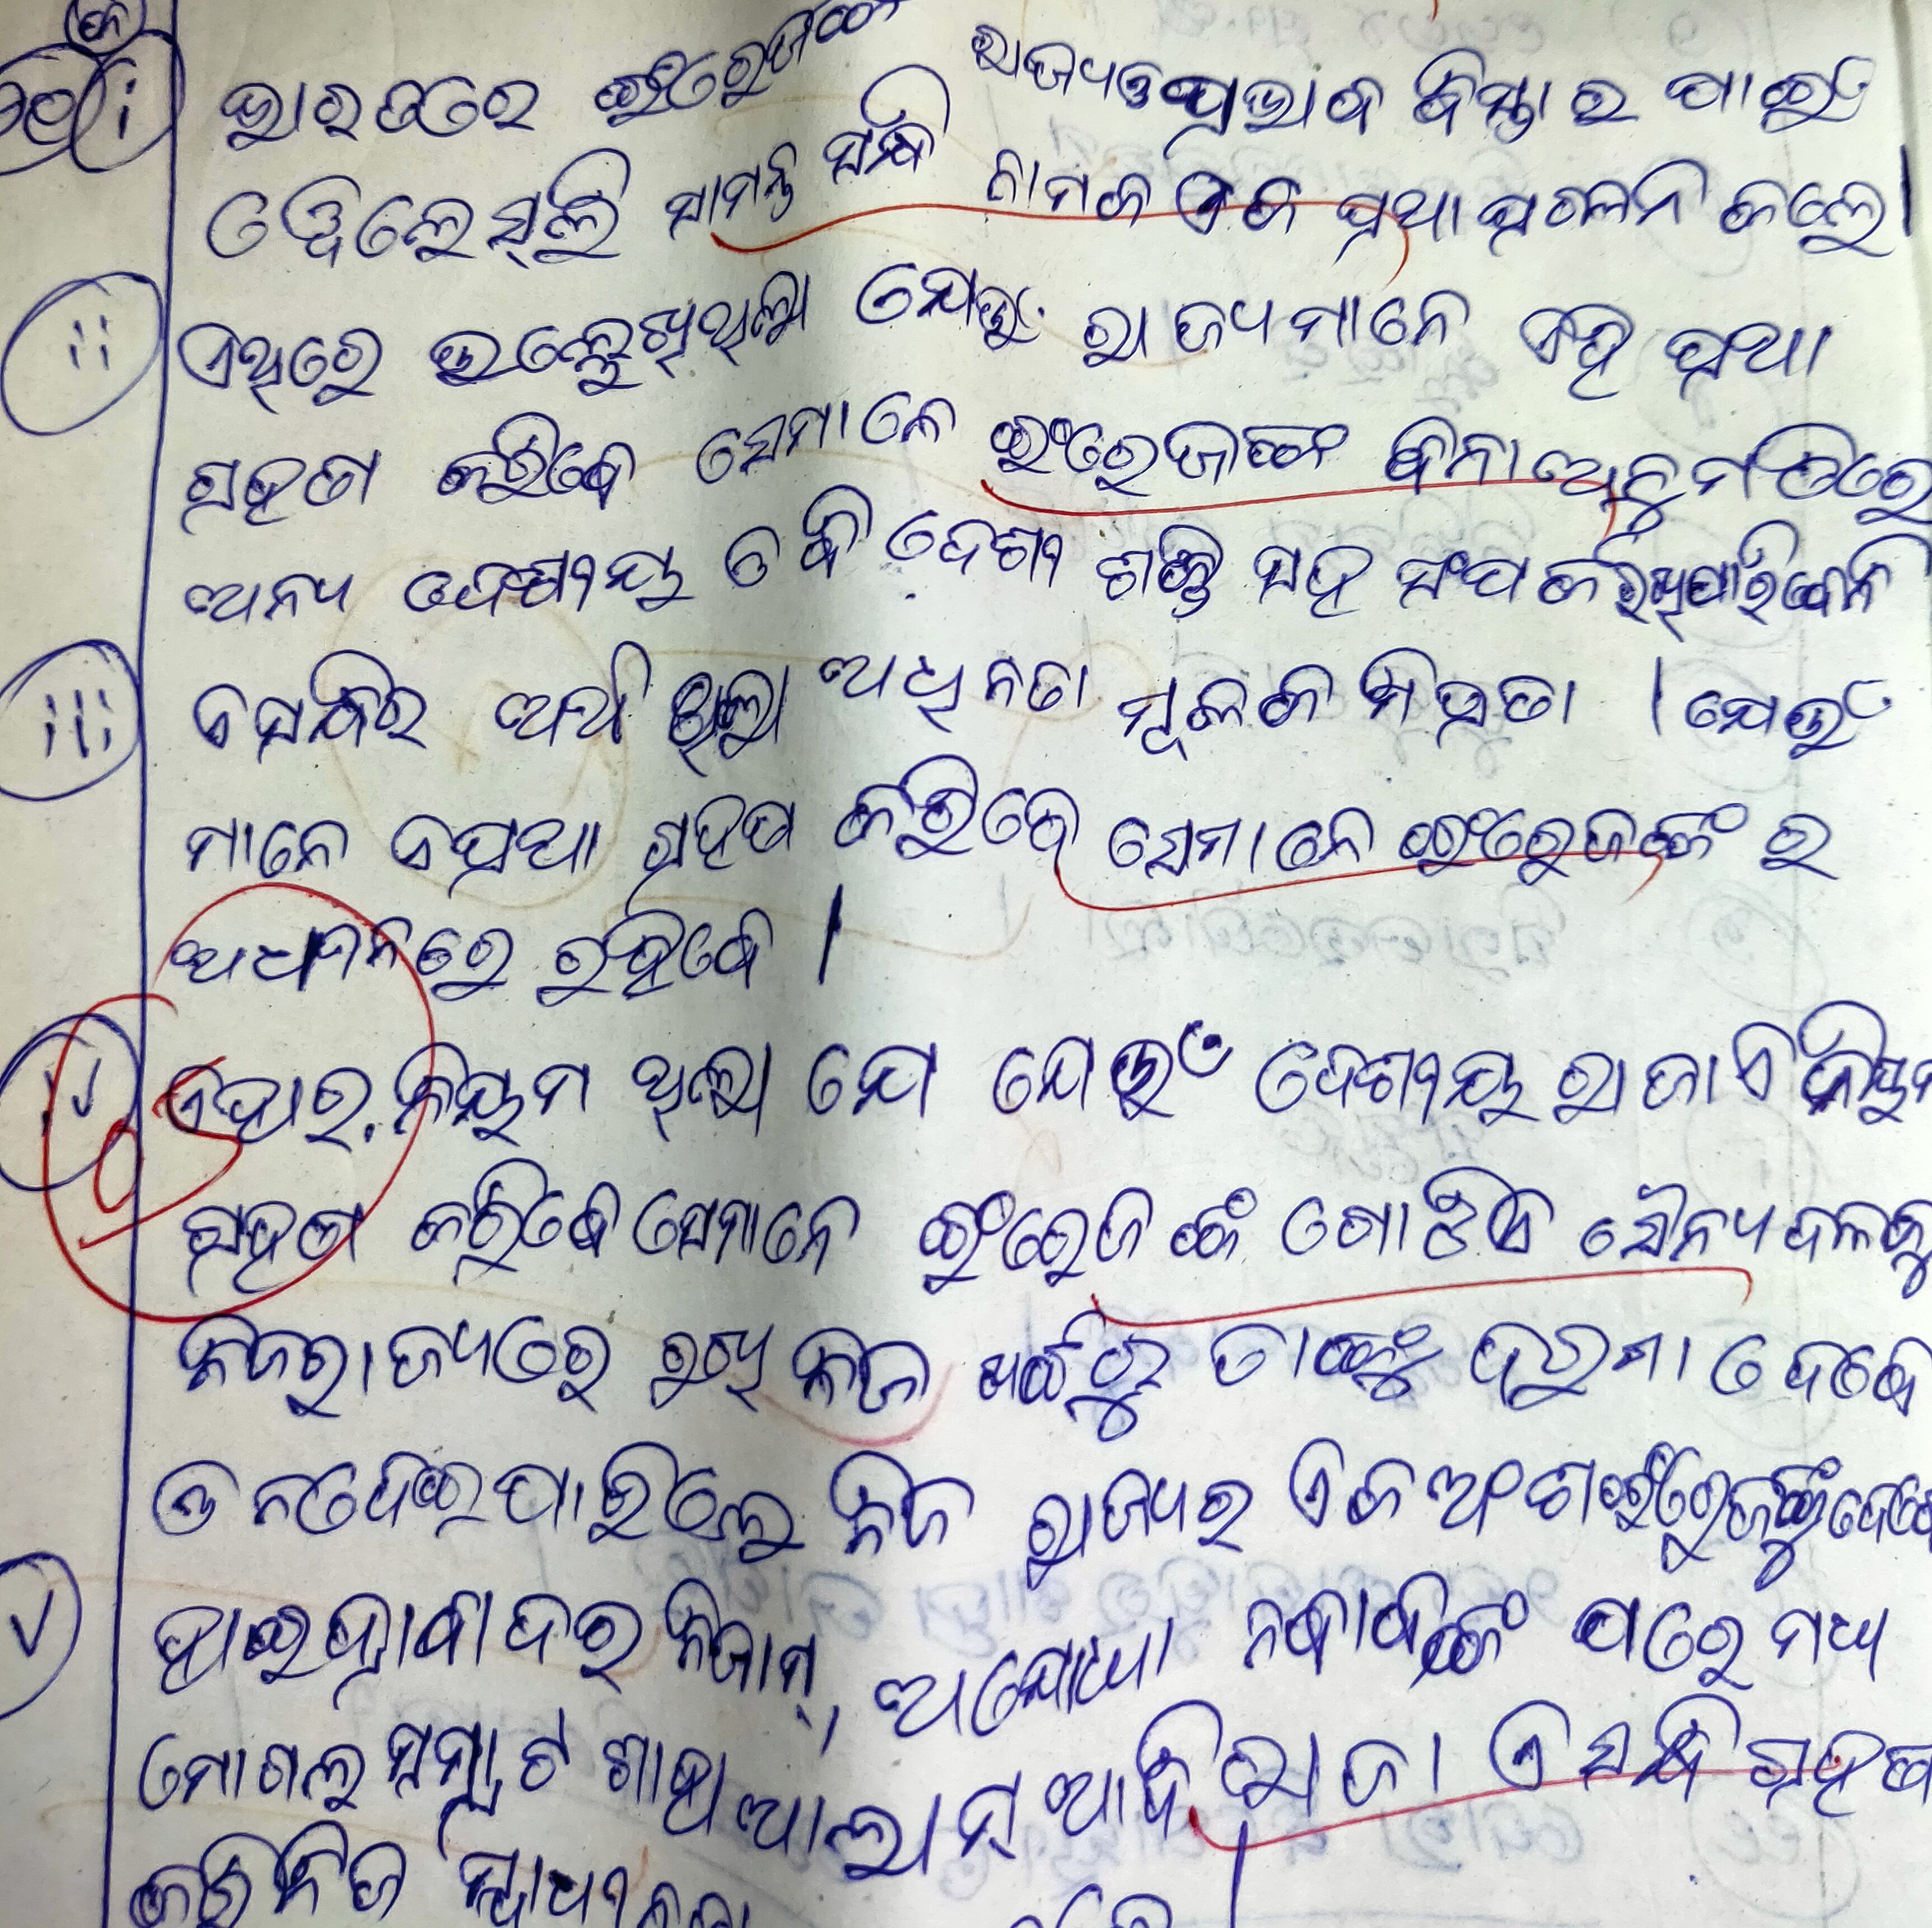 କ
i ଭାରତରେ ଇଂରେଜଙ୍କ ରାଜ୍ୟଓପ୍ରଭାବ ବିସ୍ତାର ପାଇଁ
ୱେଲେସ୍‌ଲି ସାମନ୍ତ ସନ୍ଧି ନାମକ ଏକ ପ୍ରଥା ପ୍ରଚଳନ କଲେ।
ii ଏଥିରେ ଉଲ୍ଲେଖଥିଲା ଯେଉଁ ରାଜ୍ୟମାନେ ଏହି ପ୍ରଥା
ଗ୍ରହଣ କରିବେ ସେମାନେ ଇଂରେଜଙ୍କ ବିନା ଅନୁମତିରେ
ଅନ୍ୟ ଦେଶୀୟ ବିଦେଶୀ ଶକ୍ତି ସହ ସଂପର୍କ ରଖିପାରିବେନି
iii ଏସନ୍ଧିର ଅର୍ଥ ଥିଲା ଅଧିନତା ମୂଳକ ମିତ୍ରତା । ଯେଉଁ
ମାନେ ଏପ୍ରଥା ଗ୍ରହଣ କରିବେ ସେମାନେ ଇଂରେଜଙ୍କ ର
ଅଧୀନରେ ରହିବେ ।
iv ଏହାର ନିୟମ ଥିଲା ଯେ ଯେଉଁ ଦେଶୀୟ ରାଜା ଏ ନିୟମ
ଗ୍ରହଣ କରିବେ ସେମାନେ ଇଂରେଜଙ୍କ ଗୋଟିଏ ସୈନ୍ୟଦଳକୁ
ନିଜରାଜ୍ୟରେ ରଖି ନିଜ ଖର୍ଚ୍ଚରୁ ତାଙ୍କୁ ଦରମା ଦେବେ
ଓ ନଦେଇପାରିଲେ ନିଜ ରାଜ୍ୟର ଏକ ଅଂଶ ଇଂରେଜଙ୍କୁ ଦେବେ
v ହାଇଦ୍ରାବାଦର ନିଜାମ୍, ଅଯୋଧ୍ୟା ନବାବଙ୍କ ପରେ ମଧ୍ୟ
ମୋଗଲ ସମ୍ରାଟ ଶାହାଆଲାମ୍ ଆଦି ରାଜା ଏ ସନ୍ଧି ଗ୍ରହଣ
କରି ନିଜ